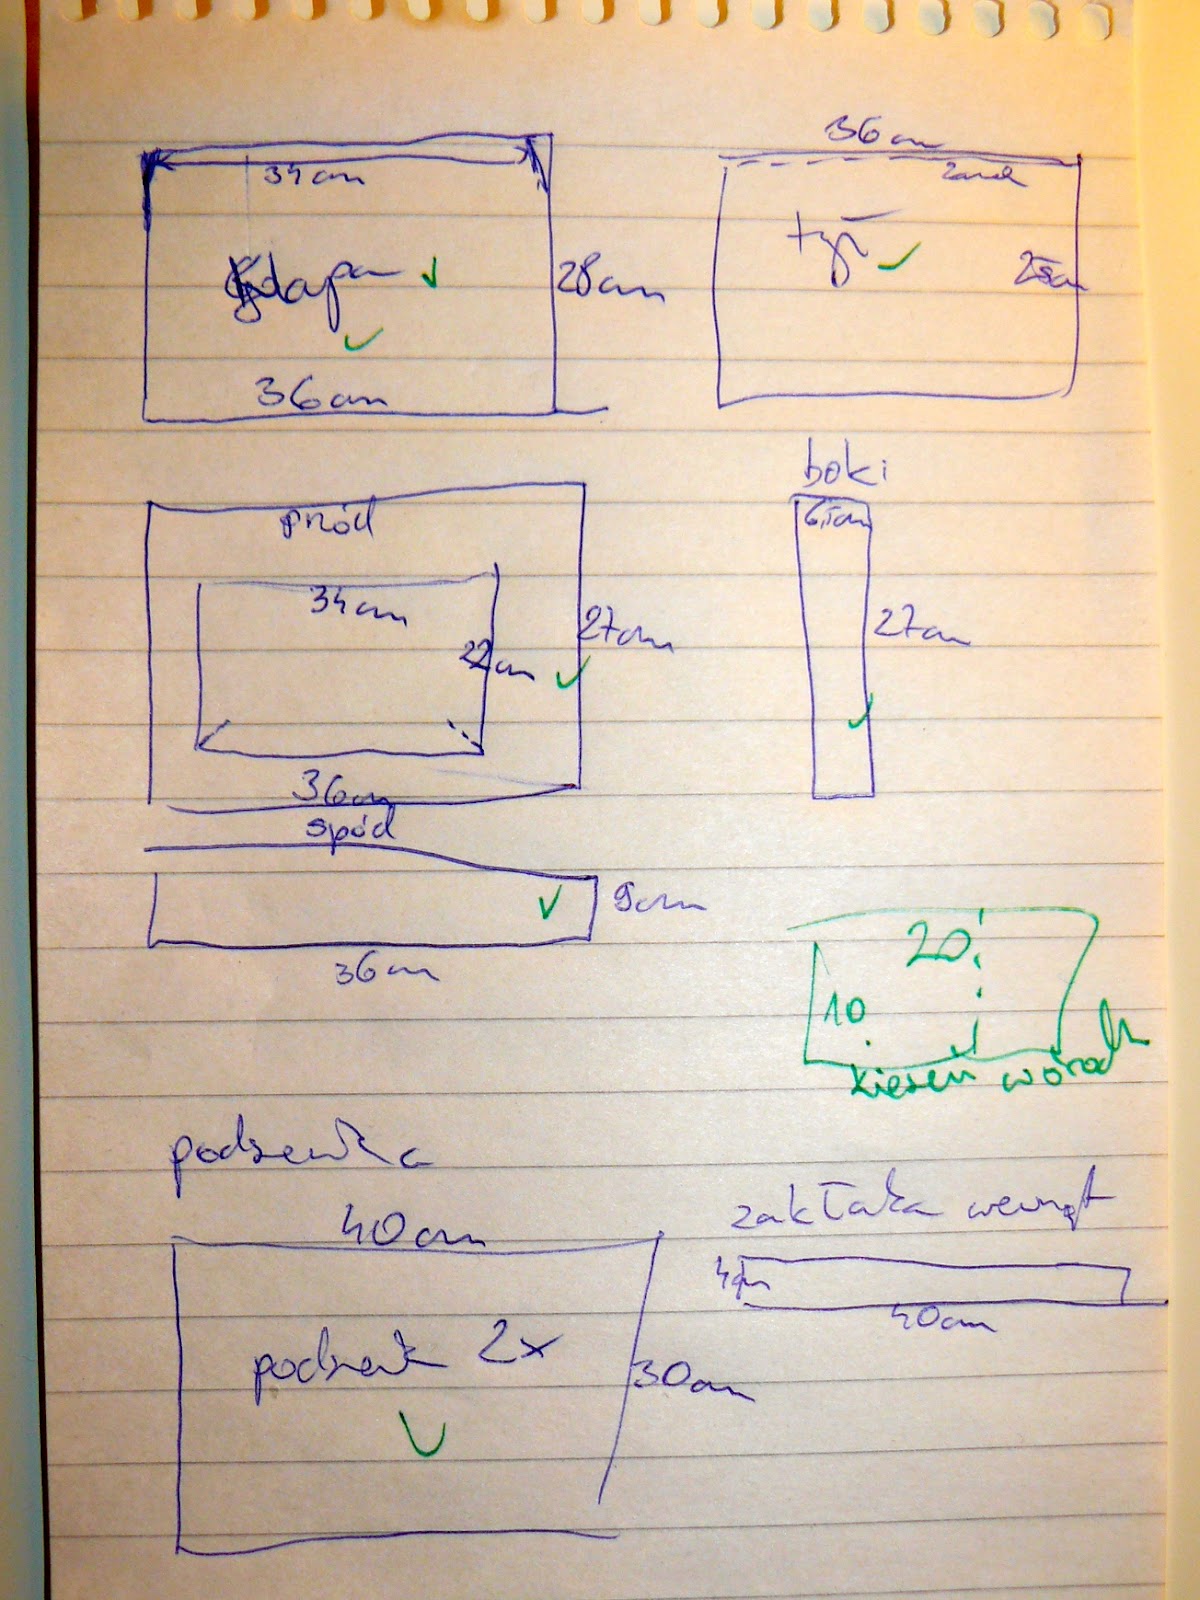 34cm
klapa
28cm
36cm
36cm
tył
25cm
przód
34cm
22cm
27cm
36cm
boki
6,5cm
27cm
spód
9cm
36cm
20
10
kieszeń
podszewka
40cm
2x
30cm
zakładka wewnęt
4cm
40cm